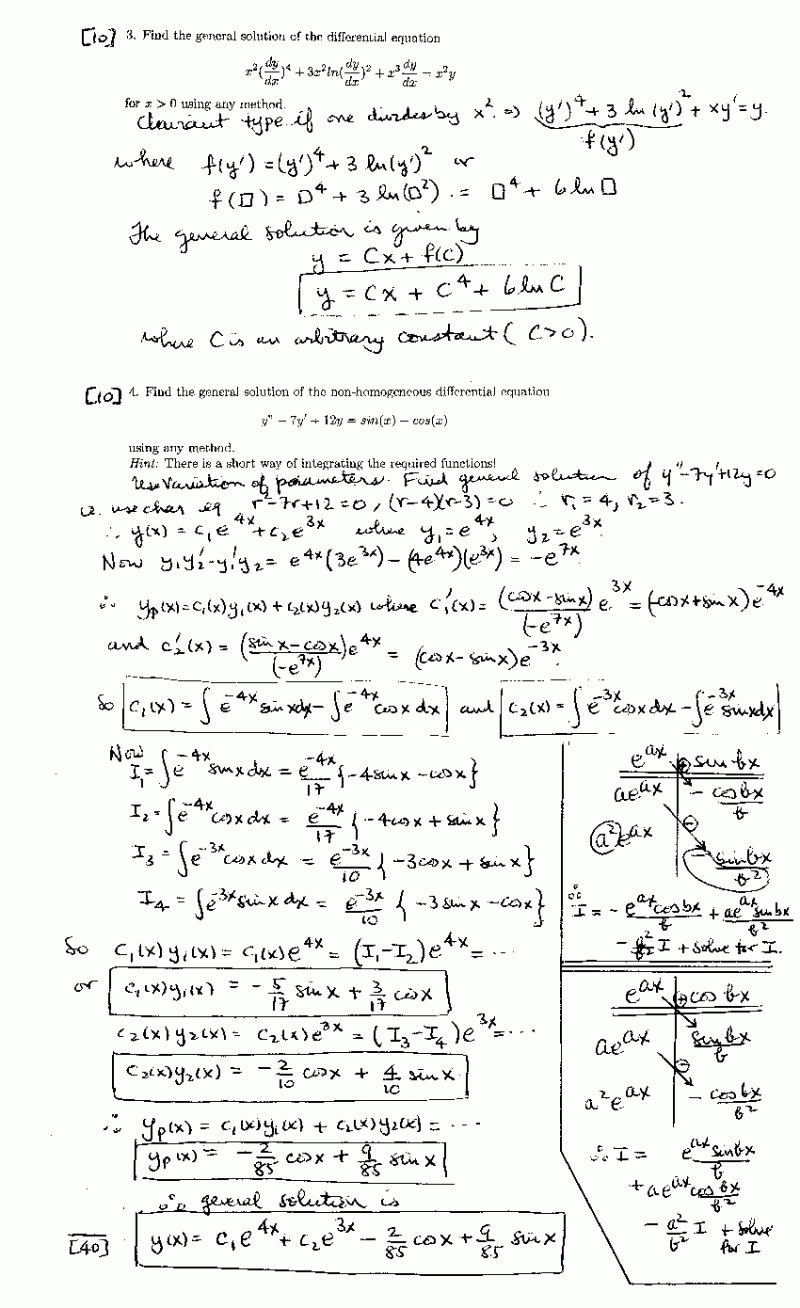 [10] 3. Find the general solution of the differential equation
x²(dy/dx)⁴ + 3x²ln(dy/dx)² + x³ dy/dx = x²y
for x > 0 using any method.
Clairaut type if one divides by x². ⇒ (y')⁴ + 3 ln(y')² + xy' = y.
f(y')
where f(y') = (y')⁴ + 3 ln(y')² or
f(□) = □⁴ + 3 ln(□²) . = □⁴ + 6 ln □
The general solution is given by
y = Cx + f(C)
y = Cx + C⁴ + 6 ln C
where C is an arbitrary constant ( C>0).
[10] 4. Find the general solution of the non-homogeneous differential equation
y'' − 7y' + 12y = sin(x) − cos(x)
using any method.
Hint: There is a short way of integrating the required functions!
Use Variation of parameters. Find general solution of y''-7y'+12y=0
use char. eq r²-7r+12=0, (r-4)(r-3)=0 ∴ r₁=4, r₂=3.
∴ y(x) = c₁e^4x + c₂e^3x where y₁=e^4x, y₂=e^3x.
Now y₁y₂'-y₁'y₂ = e^4x(3e^3x) − (4e^4x)(e^3x) = −e^7x
∴ yp(x)=c₁(x)y₁(x) + c₂(x)y₂(x) where c₁'(x) = (cosx-sinx)/(-e^7x) e^3x = (-cosx+sinx)e^-4x
and c₂'(x) = (sinx-cosx)/(-e^7x) e^4x = (cosx-sinx)e^-3x.
So c₁(x) = ∫e^-4x sinxdx − ∫e^-4x cosx dx and c₂(x) = ∫e^-3x cosx dx − ∫e^-3x sinxdx
Now
I₁ = ∫e^-4x sinx dx = e^-4x/17 {-4sinx -cosx}
I₂ = ∫e^-4x cosx dx = e^-4x/17 {-4cosx + sinx}
I₃ = ∫e^-3x cosx dx = e^-3x/10 {-3cosx + sinx}
I₄ = ∫e^-3x sinx dx = e^-3x/10 {-3sinx -cosx}
So c₁(x)y₁(x) = c₁(x)e^4x = (I₁-I₂)e^4x = ...
or c₁(x)y₁(x) = -5/17 sinx + 3/17 cosx
c₂(x)y₂(x) = c₂(x)e^3x = (I₃-I₄)e^3x = ...
c₂(x)y₂(x) = -2/10 cosx + 4/10 sinx
∴ yp(x) = c₁(x)y₁(x) + c₂(x)y₂(x) = ...
yp(x) = -2/85 cosx + 9/85 sinx
∴ general solution is
[40] y(x) = c₁e^4x + c₂e^3x − 2/85 cosx + 9/85 sinx
e^ax ⊕ sin bx
ae^ax − cosbx/b
⊖
a²e^ax − sinbx/b²
∴ I = − e^ax cosbx/b + ae^ax sinbx/b²
− a²/b² I + solve for I.
e^ax ⊕ cos bx
ae^ax sinbx/b
⊖
a²e^ax − cosbx/b²
∴ I = e^ax sinbx/b
+ ae^ax cosbx/b²
− a²/b² I + solve
for I